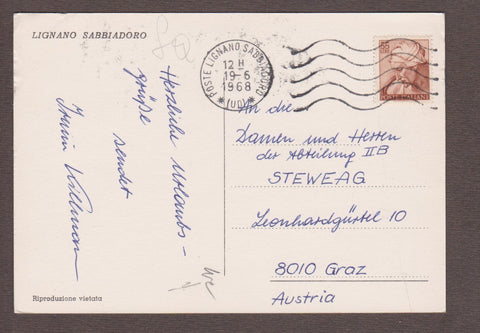 LIGNANO SABBIADORO
POSTE LIGNANO SABBIADORO
12 H
19-6
1968
(UD)
POSTE ITALIANE
Herzliche Urlaubs-
grüße
sendet
An die
Damen und Herren
der Abteilung IIB
STEWEAG
Leonhardgürtel 10
8010 Graz
Austria
Riproduzione vietata